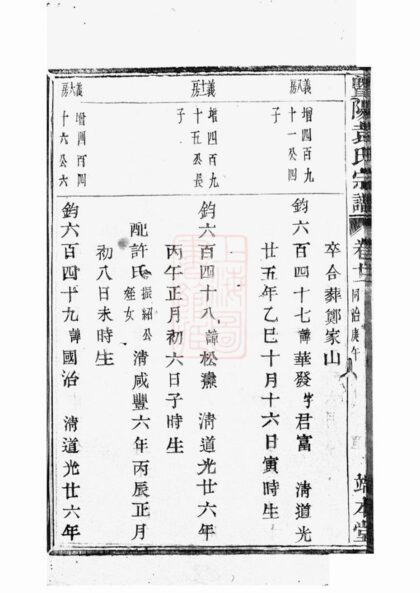 暨陽袁氏宗譜
卷
同治庚午
端本堂
卒合葬鄭家山
義八房
增四百九
十一公四
子
鈞六百四十七諱華發字君富 清道光
廿五年乙巳十月十六日寅時生
義房
增四百九
十五公長
子
鈞六百四十八諱松燾 清道光廿六年
丙午正月初六日子時生
配許氏振紹公姪女 清咸豐六年丙辰正月
初八日未時生
義大房
增四百四
十六公六
鈞六百四十九諱國治 清道光廿六年